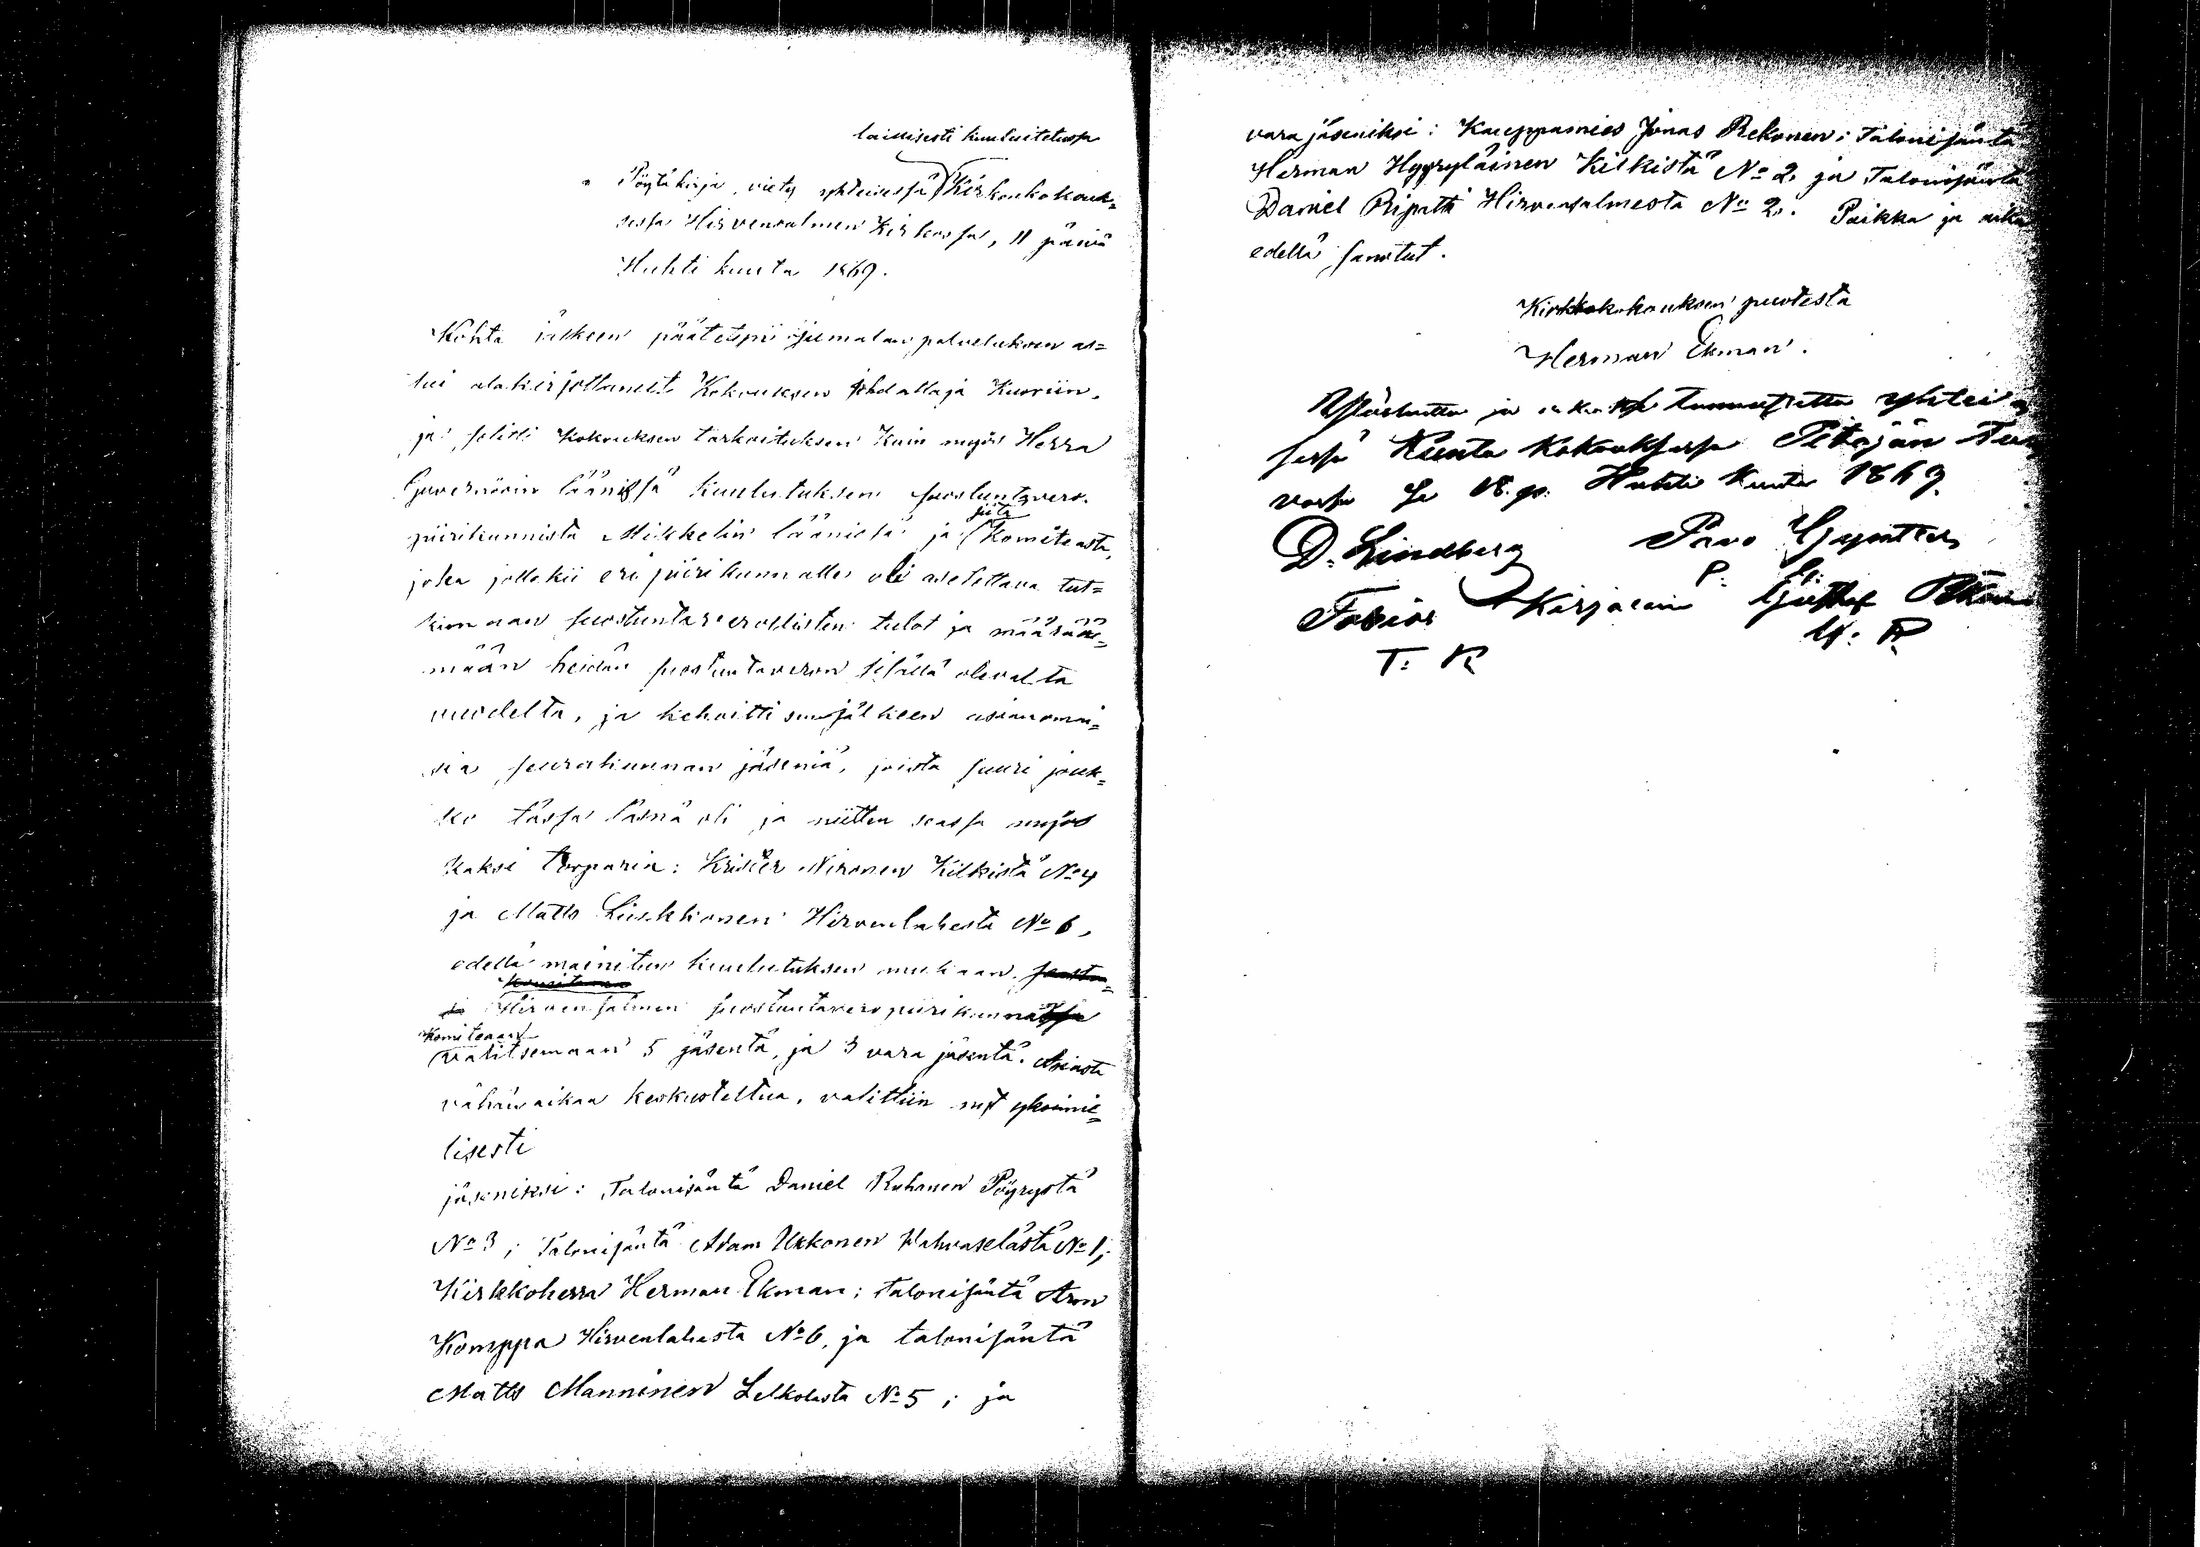 laillisesti kuulutetussa
Pöytäkirja, viety yhteisessä Kirkonkokouk=
sessa Hirvensalmen Kirkossa, 11 päivä
Huhti kuuta 1869.
Kohta jälkeen päätetyn jumalan palveluksen as=
tui alakirjoittanut Kokouksen johdattaja Kuoriin,
ja selitti Kokouksen tarkoituksen kuin myös Herra
Guvernörin läänissä kuulutuksen suostuntavero-
siitä
piirikunnista Mikkelin läänissä ja Komiteasta,
joka jollekii eri piirikunnalle oli asetettava tut=
kimaan suostuntaverollisten tulot ja määrää=
mään heidän suostuntaveron sisällä olevalta
vuodelta, ja kehoitti sen jälkeen asianomai=
sia seurakunnan jäseniä, joista suuri jouk=
ko tässä läsnä oli ja niitten seassa myös
kaksi torparia: Krister Nironen Kilkistä No 4
ja Matts Liukkonen Hirvenlahesta No 6,
edellä mainitun kuulutuksen mukaan
Hirvensalmen suostuntavero piirikunnassa
Komiteaan
valitsemaan 5 jäsentä, ja 3 vara jäsentä. Asiasta
vähän aikaa keskusteltua, valittiin nyt yksimie=
lisesti
jäseniksi: Talonisäntä Daniel Ruhanen Pöyrystä
No 3; Talonisäntä Adam Ukkonen Vahvaselästä No 1;
Kirkkoherra Herman Ekman; talonisäntä Aron
Komppa Hirvenlahesta No 6, ja talonisäntä
Matts Manninen Lelkolasta No 5; ja
vara jäseniksi: Kauppamies Jonas Rekonen; Talonisäntä
Herman Hyyryläinen Kilkistä No 2. ja Talonisäntä
Daniel Ripatti Hirvensalmesta No 2. Paikka ja aika
edellä sanotut.
Kirkkokokouksen puolesta
Herman Ekman.
Ylösluettu ja oikiaksi tunnustettu yhtei
sessä Kunta Kokouksessa Pitäjän Tu
vassa se 18. p. Huhti Kuuta 1869.
D. Lindberg Pavo
Tobias Karjalain Gustaf
T: K